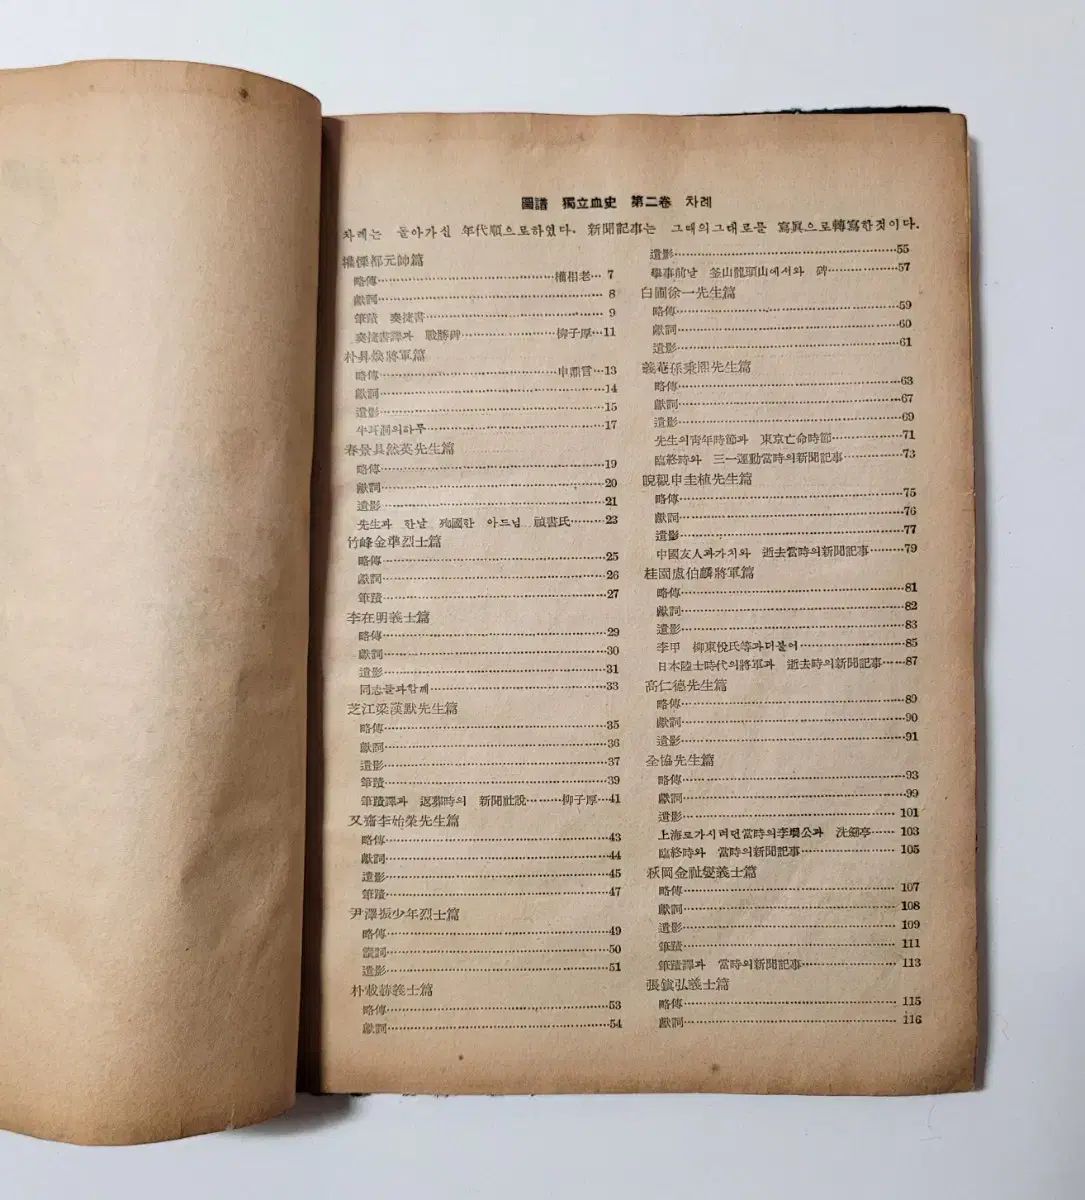 圖譜 獨立血史 第二卷 차례
차례는 돌아가신 年代順으로하였다. 新聞記事는 그대의그대로를 寫眞으로轉寫한것이다.
權慄都元帥篇
略傳……權相老…7
獻詞……8
筆蹟 奏捷書……9
奏捷書譯과 戰勝碑……柳子厚…11
朴昇煥將軍篇
略傳……申鼎言…13
獻詞……14
遺影……15
牛耳洞의하루……17
春景具然英先生篇
略傳……19
獻詞……20
遺影……21
先生과 한날 殉國한 아드님 禎書氏……23
竹峰金準烈士篇
略傳……25
獻詞……26
筆蹟……27
李在明義士篇
略傳……29
獻詞……30
遺影……31
同志들과함께……33
芝江梁漢默先生篇
略傳……35
獻詞……36
遺影……37
筆蹟……39
筆蹟譯과 返葬時의 新聞社說……柳子厚…41
又齋李始榮先生篇
略傳……43
獻詞……44
遺影……45
筆蹟……47
尹澤振少年烈士篇
略傳……49
讚詞……50
遺影……51
朴載赫義士篇
略傳……53
獻詞……54
遺影……55
擧事前날 釜山龍頭山에서와 碑……57
白圃徐一先生篇
略傳……59
獻詞……60
遺影……61
義菴孫秉熙先生篇
略傳……63
獻詞……67
遺影……69
先生의靑年時節과 東京亡命時節……71
臨終時와 三一運動當時의新聞記事……73
睨觀申圭植先生篇
略傳……75
獻詞……76
遺影……77
中國友人과가치와 逝去當時의新聞記事……79
桂園盧伯麟將軍篇
略傳……81
獻詞……82
遺影……83
李甲 柳東悅氏等과더불어……85
日本陸士時代의將軍과 逝去時의新聞記事……87
高仁德先生篇
略傳……89
獻詞……90
遺影……91
全協先生篇
略傳……93
獻詞……99
遺影……101
上海로가시려던當時의李堈公과 洗劒亭……103
臨終時와 當時의新聞記事……105
秋岡金祉燮義士篇
略傳……107
獻詞……108
遺影……109
筆蹟……111
筆蹟譯과 當時의新聞記事……113
張鎭弘義士篇
略傳……115
獻詞……116